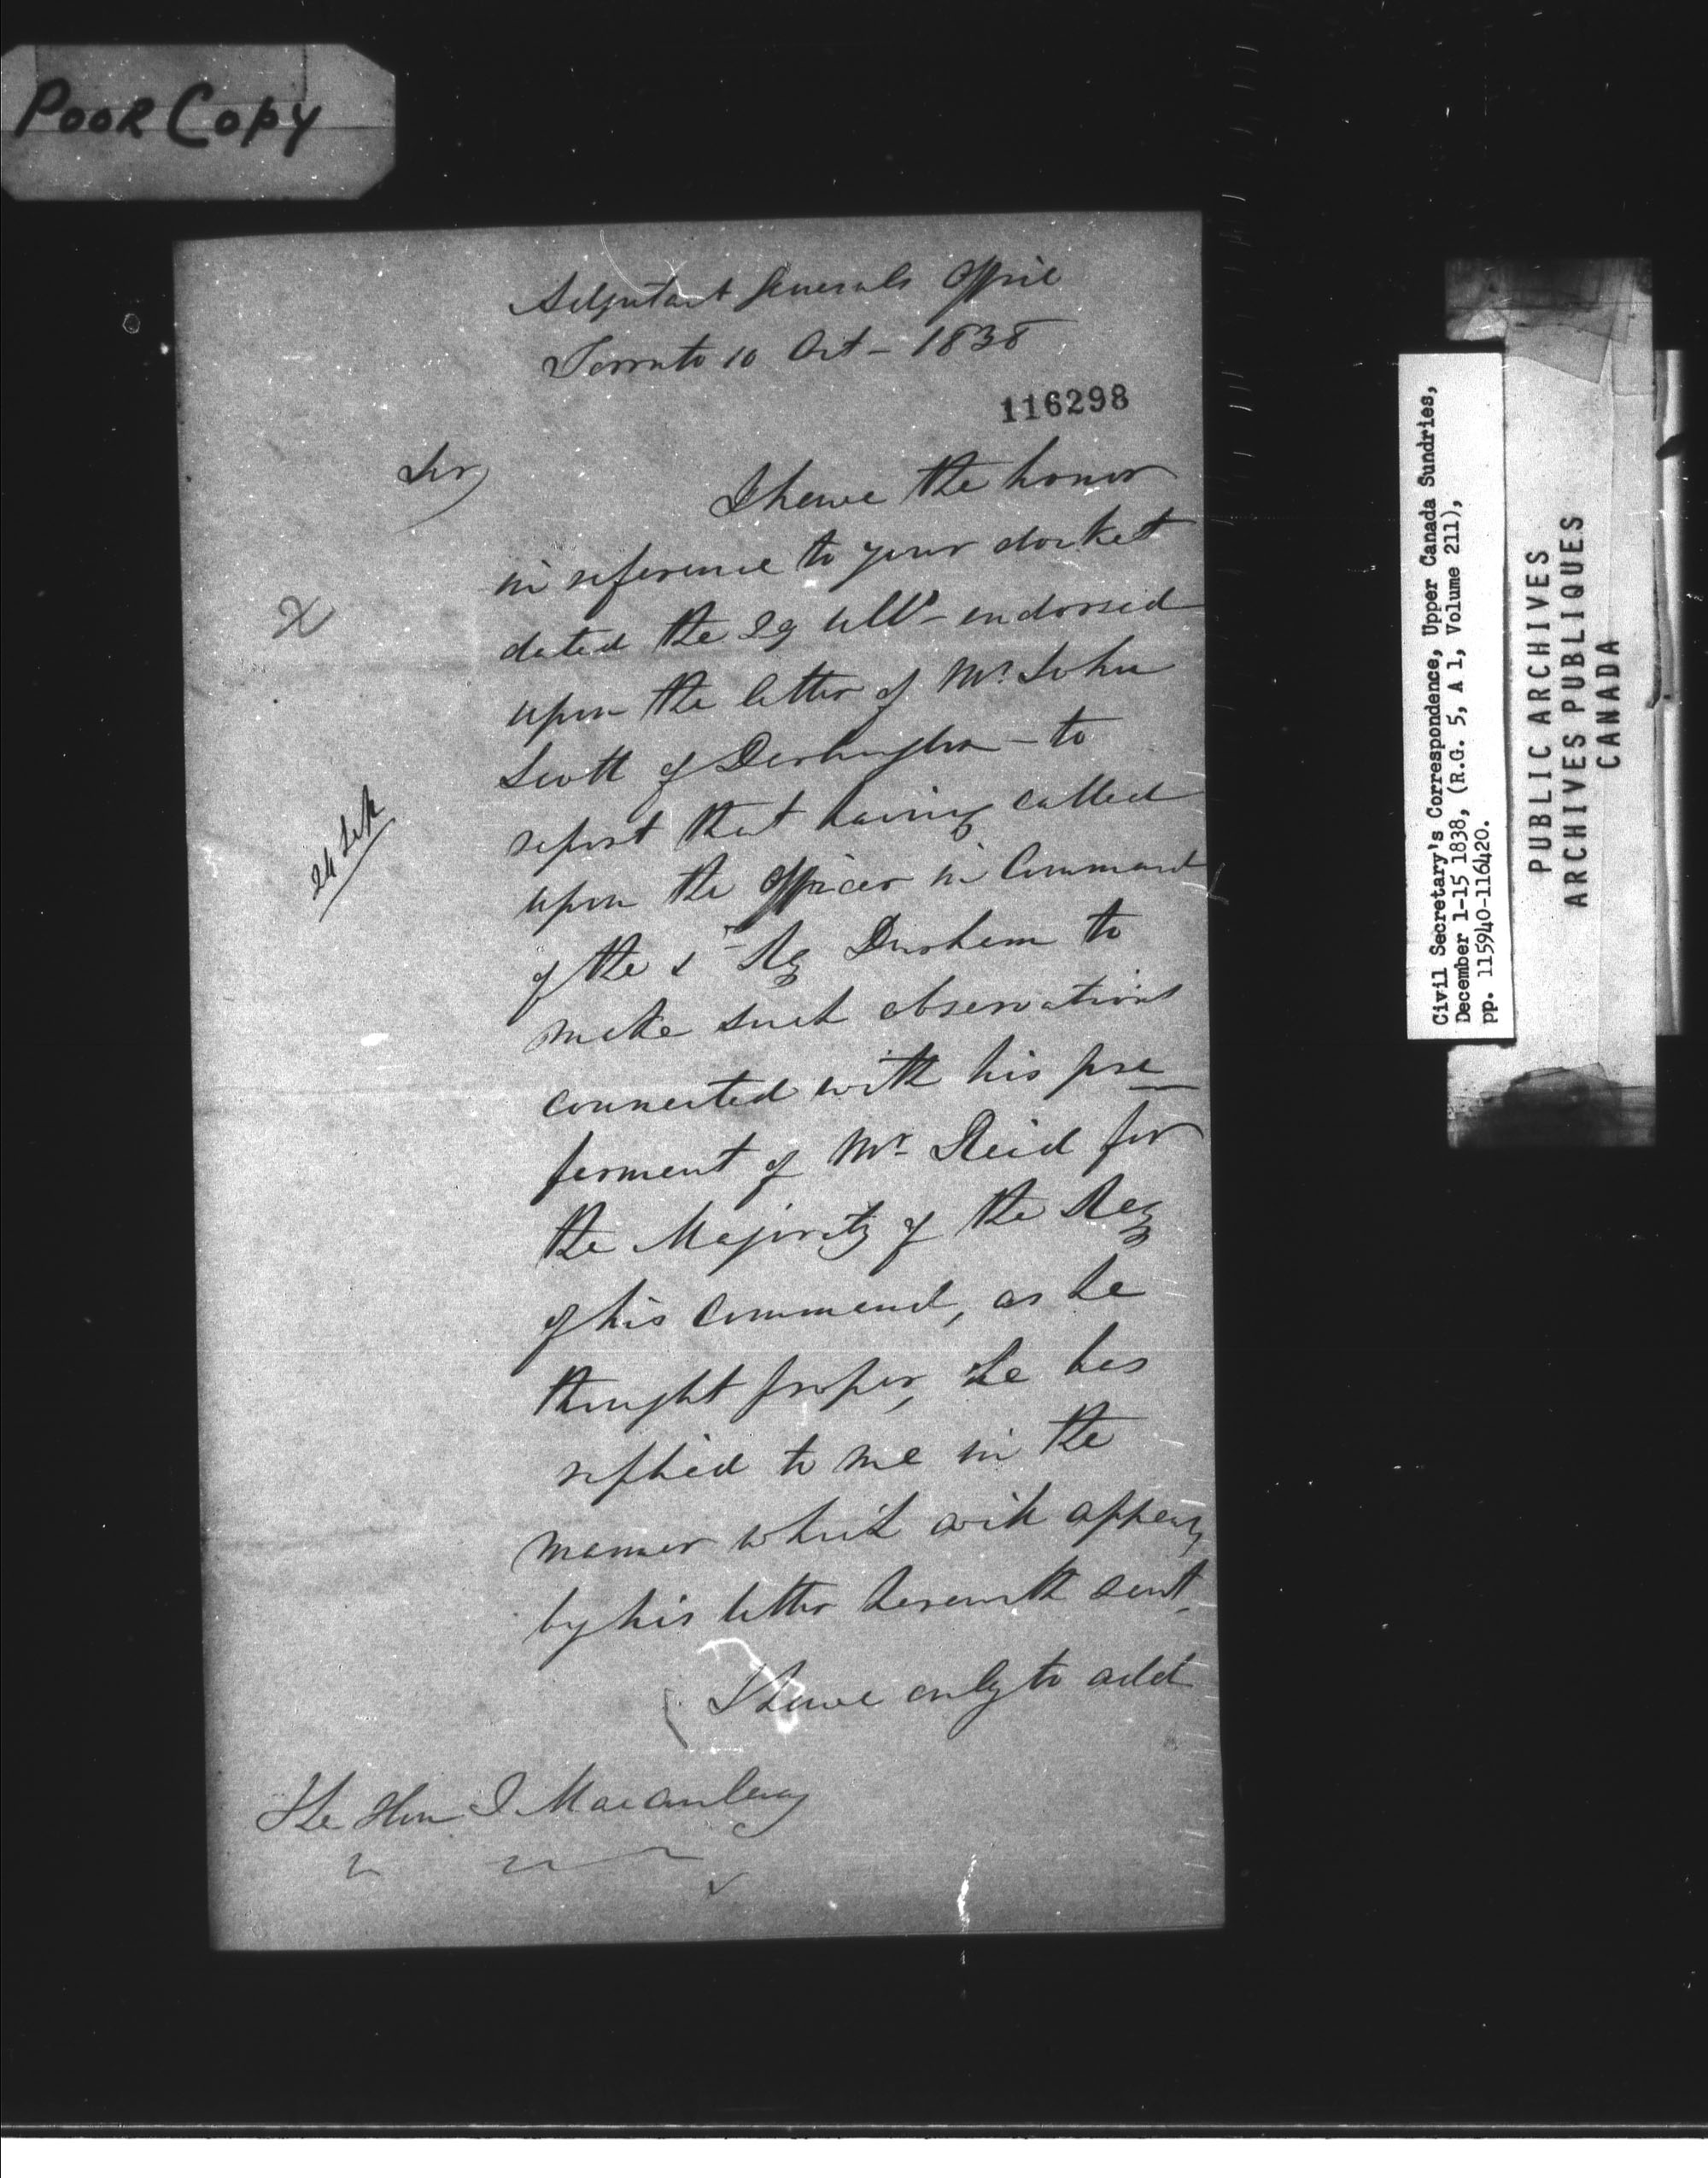 POOR COPY
Adjutant Generals Office
Toronto 10 Oct - 1838
116298
Sir
I have the honor
in reference to your docket
dated the 29 Ult° - endorsed
upon the letter of Mr. John
Scott of Darlington - to
report that having called
upon the Officer in Command
of the Reg Durham to
make such observations
connected with his pre
ferment of Mr Reid for
the Majority of the Reg
of his Command, as he
thought proper, he has
replied to me in the
manner which will appear
by his letter herewith sent.
I have only to add
The Hon J Macaulay
X
24
Civil Secretary's Correspondence, Upper Canada Sundries,
December 1-15 1838, (R.G. 5, A 1, Volume 211),
pp. 115940-116420.
PUBLIC ARCHIVES
ARCHIVES PUBLIQUES
CANADA